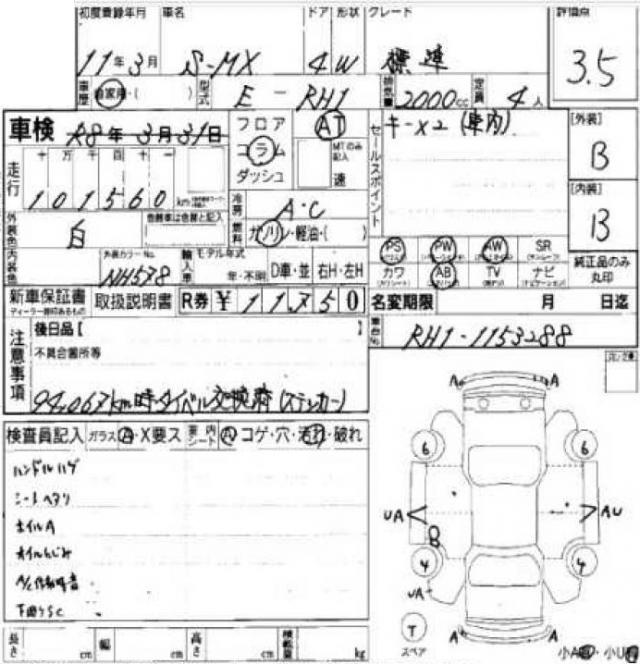 初度登録年月 車名 ドア 形状 グレード 評価点
11年3月 S-MX 4 W 標準 3.5
車歴 自家用・( ) 型式 E-RH1 排気量 2000cc 定員 4人
車検 R8年3月31日 フロア AT セールスポイント キー×2(車内) [外装]
コラム MTのみ記入 B
走行 十万千百十一 ダッシュ 速
101560 km 冷房 A・C [内装]
外装色 白 色替車は色替と記入 燃料 ガソリン・軽油・( ) B
内装色 外装カラーNo. NH578 輸入車 モデル年式 年・不明 D車・並 右H・左H
PS PW AW SR 純正品のみ丸印
カワ AB TV ナビ
新車保証書 取扱説明書 R券 ¥11750 名変期限 月 日迄
注意事項 後日品 [ ] 車台No. RH1-1153288
不具合箇所等
94,067km時タイベル交換済(ステッカー)
検査員記入 ガラス A・X要ス 要内シート A コゲ・穴・汚れ・破れ
ハンドルハゲ
シートヘタリ
ホイルA
オイルにじみ
A/C作動時音
下回りSC
長さ cm 幅 cm 高さ cm 積載量 kg
A A
6 6
UA AU
8
4 4
UA
T スペア A A
小A 小U